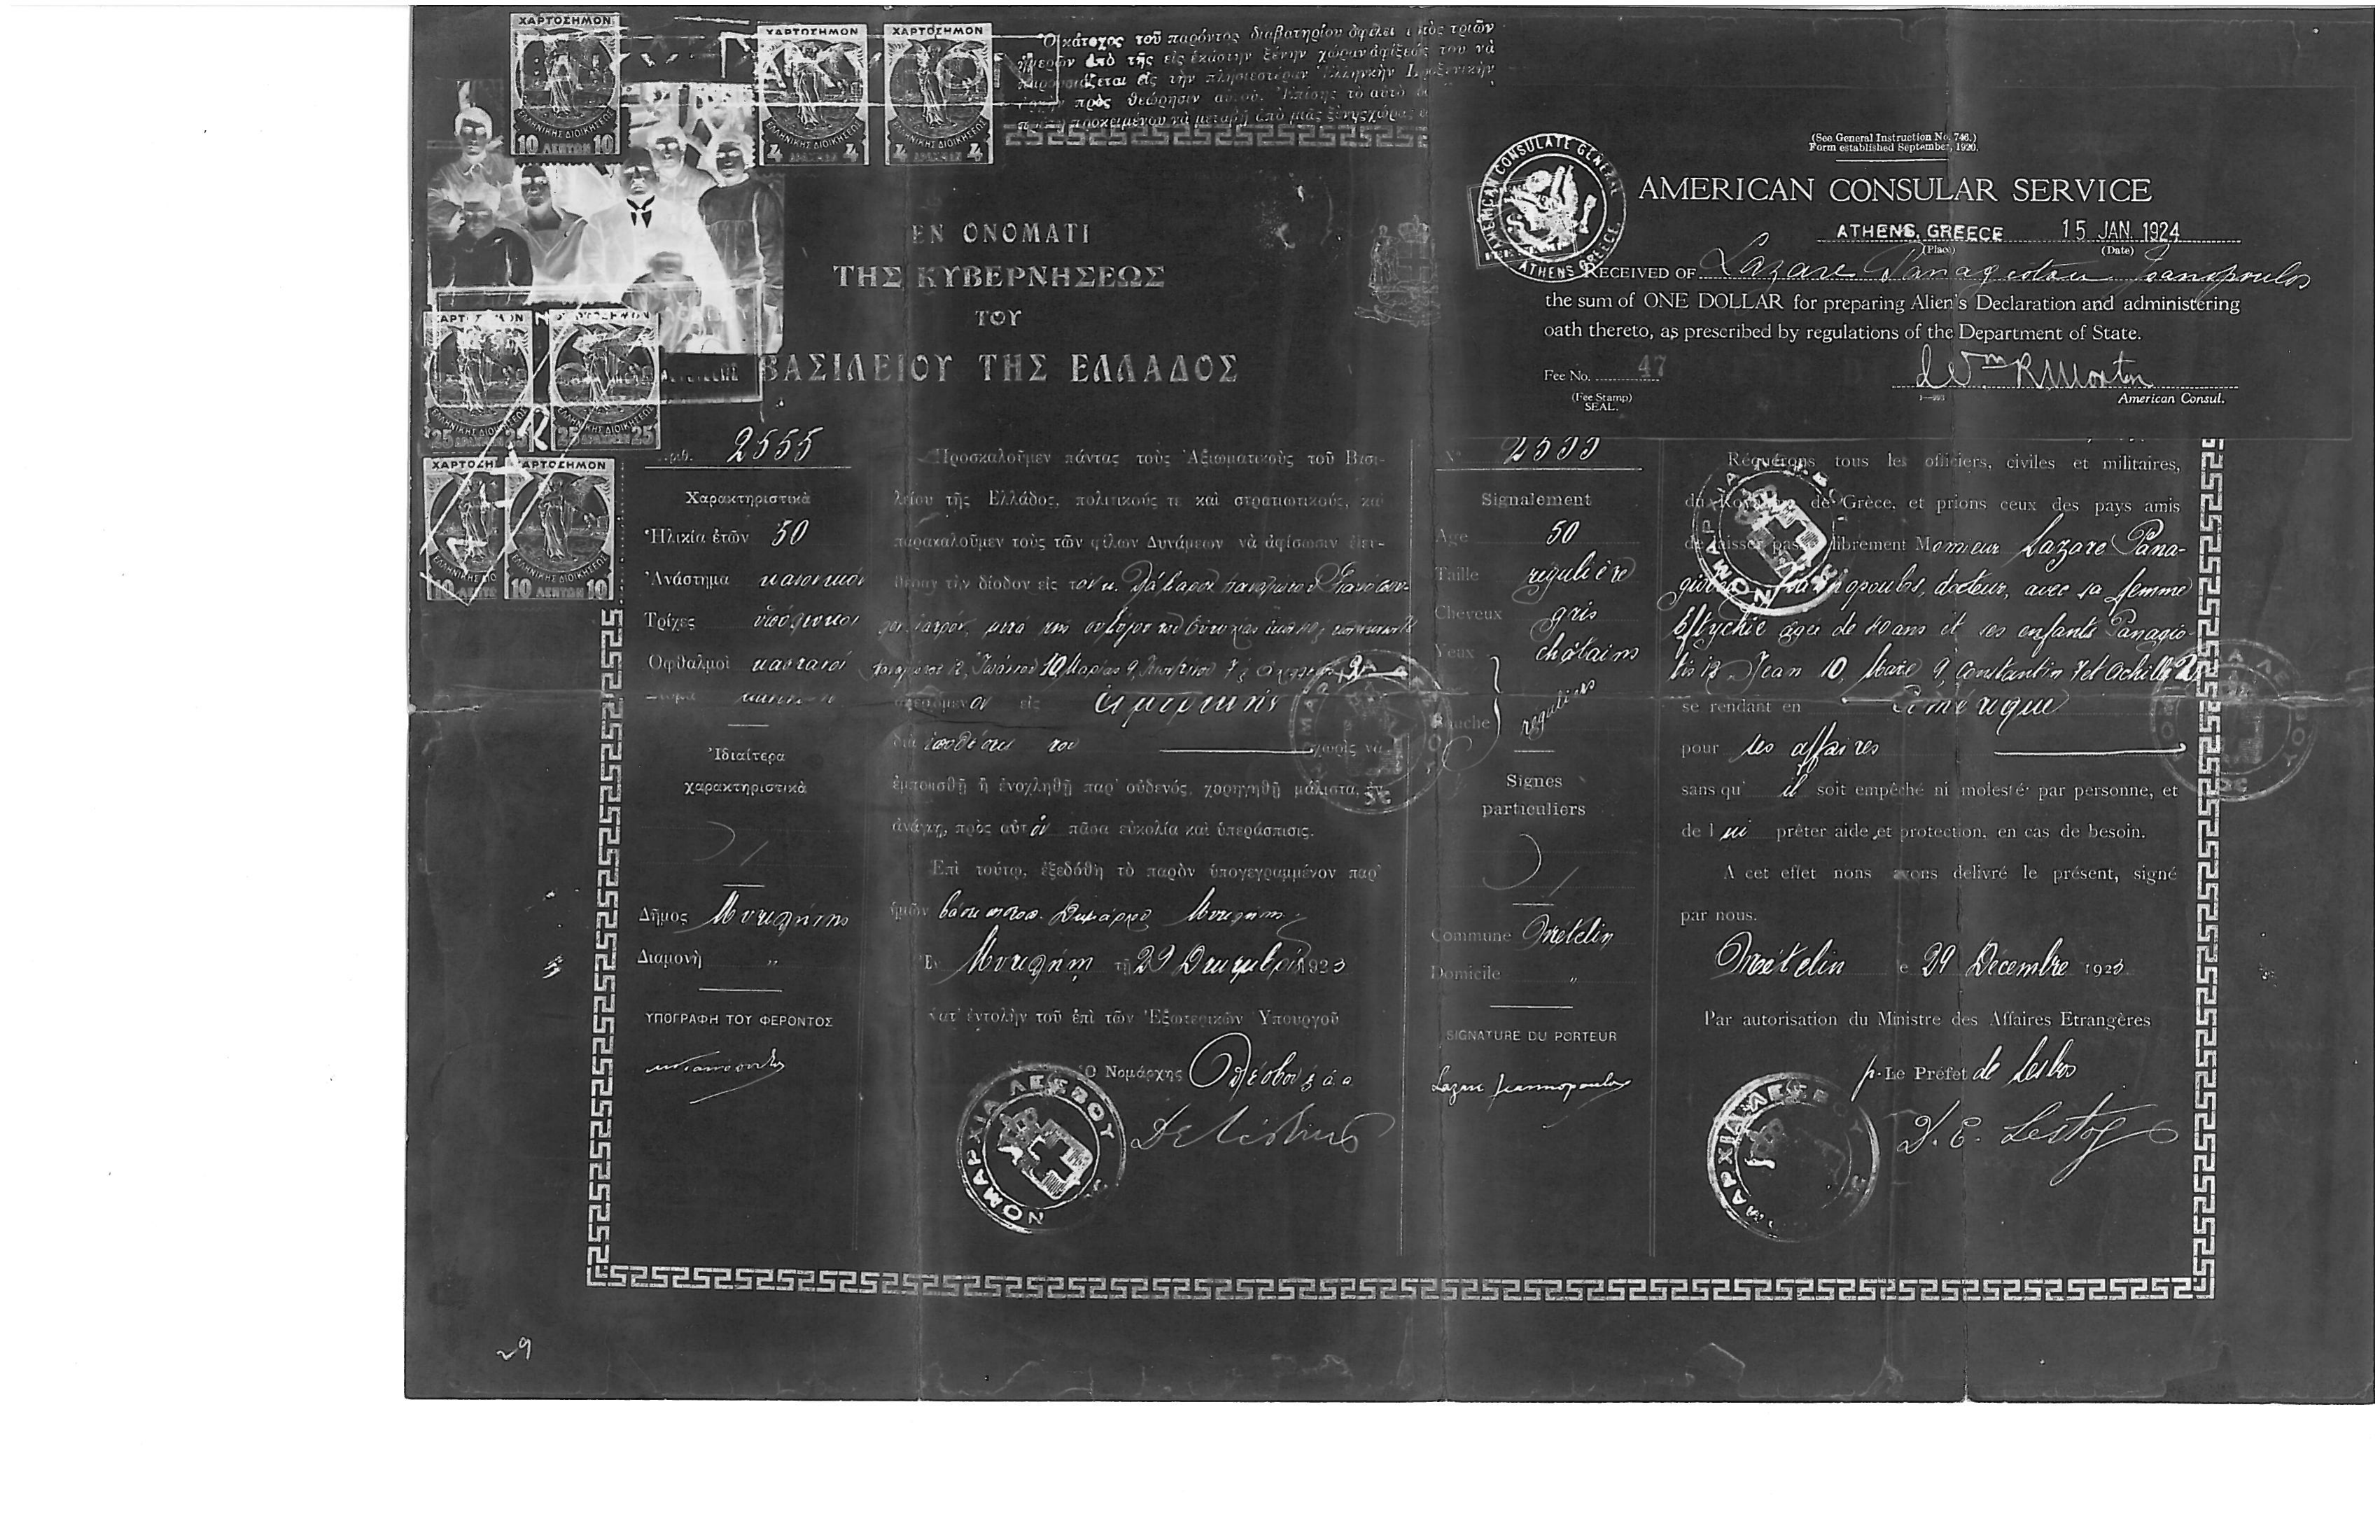 ΧΑΡΤΟΣΗΜΟΝ
ΕΛΛΗΝΙΚΗΣ ΔΙΟΙΚΗΣΕΩΣ
10 ΛΕΠΤΩΝ 10
ΧΑΡΤΟΣΗΜΟΝ
ΕΛΛΗΝΙΚΗΣ ΔΙΟΙΚΗΣΕΩΣ
4 ΔΡΑΧΜΑΙ 4
ΧΑΡΤΟΣΗΜΟΝ
ΕΛΛΗΝΙΚΗΣ ΔΙΟΙΚΗΣΕΩΣ
4 ΔΡΑΧΜΑΙ 4
Ὁ κάτοχος τοῦ παρόντος διαβατηρίου ὀφείλει τριῶν
ἡμερῶν ἀπὸ τῆς εἰς ἑκάστην ξένην χώραν ἀφίξεώς του νὰ
παρουσιάζεται εἰς τὴν πλησιεστέραν Ἑλληνικὴν Προξενικὴν
πρὸς θεώρησιν αὐτοῦ. Ἐπίσης τὸ αὐτὸ
προκειμένου νὰ μεταβῇ ἀπὸ μιᾶς ξένης χώρας
ΕΝ ΟΝΟΜΑΤΙ
ΤΗΣ ΚΥΒΕΡΝΗΣΕΩΣ
ΤΟΥ
ΒΑΣΙΛΕΙΟΥ ΤΗΣ ΕΛΛΑΔΟΣ
25 ΔΡΑΧΜΑΙ 25
25 ΔΡΑΧΜΑΙ 25
ΧΑΡΤΟΣΗΜΟΝ
10 ΛΕΠΤΩΝ 10
(See General Instruction No. 746.)
Form established September, 1920.
AMERICAN CONSULATE GENERAL
ATHENS GREECE.
AMERICAN CONSULAR SERVICE
ATHENS, GREECE 15 JAN. 1924
(Place) (Date)
RECEIVED OF Lazare Panagiotou Joanopoulos
the sum of ONE DOLLAR for preparing Alien's Declaration and administering
oath thereto, as prescribed by regulations of the Department of State.
Fee No. 47
(Fee Stamp)
SEAL.
Wm R Morton
American Consul.
Ἀριθ. 2555
Χαρακτηριστικὰ
Ἡλικία ἐτῶν 50
Ἀνάστημα κανονικόν
Τρίχες
Ὀφθαλμοὶ καστανοί
Ἰδιαίτερα
χαρακτηριστικὰ
Δῆμος Μυτιλήνης
Διαμονὴ „
ΥΠΟΓΡΑΦΗ ΤΟΥ ΦΕΡΟΝΤΟΣ
Προσκαλοῦμεν πάντας τοὺς Ἀξιωματικοὺς τοῦ Βασι-
λείου τῆς Ἑλλάδος, πολιτικούς τε καὶ στρατιωτικούς, καὶ
παρακαλοῦμεν τοὺς τῶν φίλων Δυνάμεων νὰ ἀφίσωσιν ἐλευ-
θέραν τὴν δίοδον εἰς τὸν κ. Λάζαρον Παναγιώτου
ἰατρόν, μετὰ τῆς συζύγου του Εὐτυχίας
12, Ἰωάννου 10, Μαρίας 9, Κωνσταντίνου 7
εἰς Ἀμερικήν
διὰ ὑποθέσεις του χωρὶς νὰ
ἐμποδισθῇ ἢ ἐνοχληθῇ παρ' οὐδενός, χορηγηθῇ μάλιστα, ἐν
ἀνάγκῃ, πρὸς αὐτὸν πᾶσα εὐκολία καὶ ὑπεράσπισις.
Ἐπὶ τούτῳ, ἐξεδόθη τὸ παρὸν ὑπογεγραμμένον παρ'
ἡμῶν
Ἐν Μυτιλήνῃ τῇ 29 Δεκεμβρίου 1923
Κατ' ἐντολὴν τοῦ ἐπὶ τῶν Ἐξωτερικῶν Ὑπουργοῦ
Ὁ Νομάρχης Λέσβου κ.ἀ.α
ΝΟΜΑΡΧΙΑ ΛΕΣΒΟΥ
N° 2555
Signalement
Age 50
Taille regulière
Cheveux gris
Yeux châtains
Bouche reguliers
Signes
particuliers
Commune Metelin
Domicile „
SIGNATURE DU PORTEUR
Lazare Jeannopoulos
Réquérons tous les officiers, civiles et militaires,
du Royaume de Grèce, et prions ceux des pays amis
de laisser passer librement Monsieur Lazare Pana-
giotou Joannopoulos, docteur, avec sa femme
Eftychie agée de 40 ans et ses enfants Panagio-
tis 12 Jean 10, Marie 9, Constantin 7 et Achille 2
se rendant en Amérique
pour ses affaires
sans qu' il soit empêché ni molesté par personne, et
de lui prêter aide et protection, en cas de besoin.
A cet effet nons avons delivré le présent, signé
par nous.
Metelin le 29 Décembre 1923
Par autorisation du Ministre des Affaires Etrangères
p. Le Préfet de Lesbos
ΝΟΜΑΡΧΙΑ ΛΕΣΒΟΥ
29